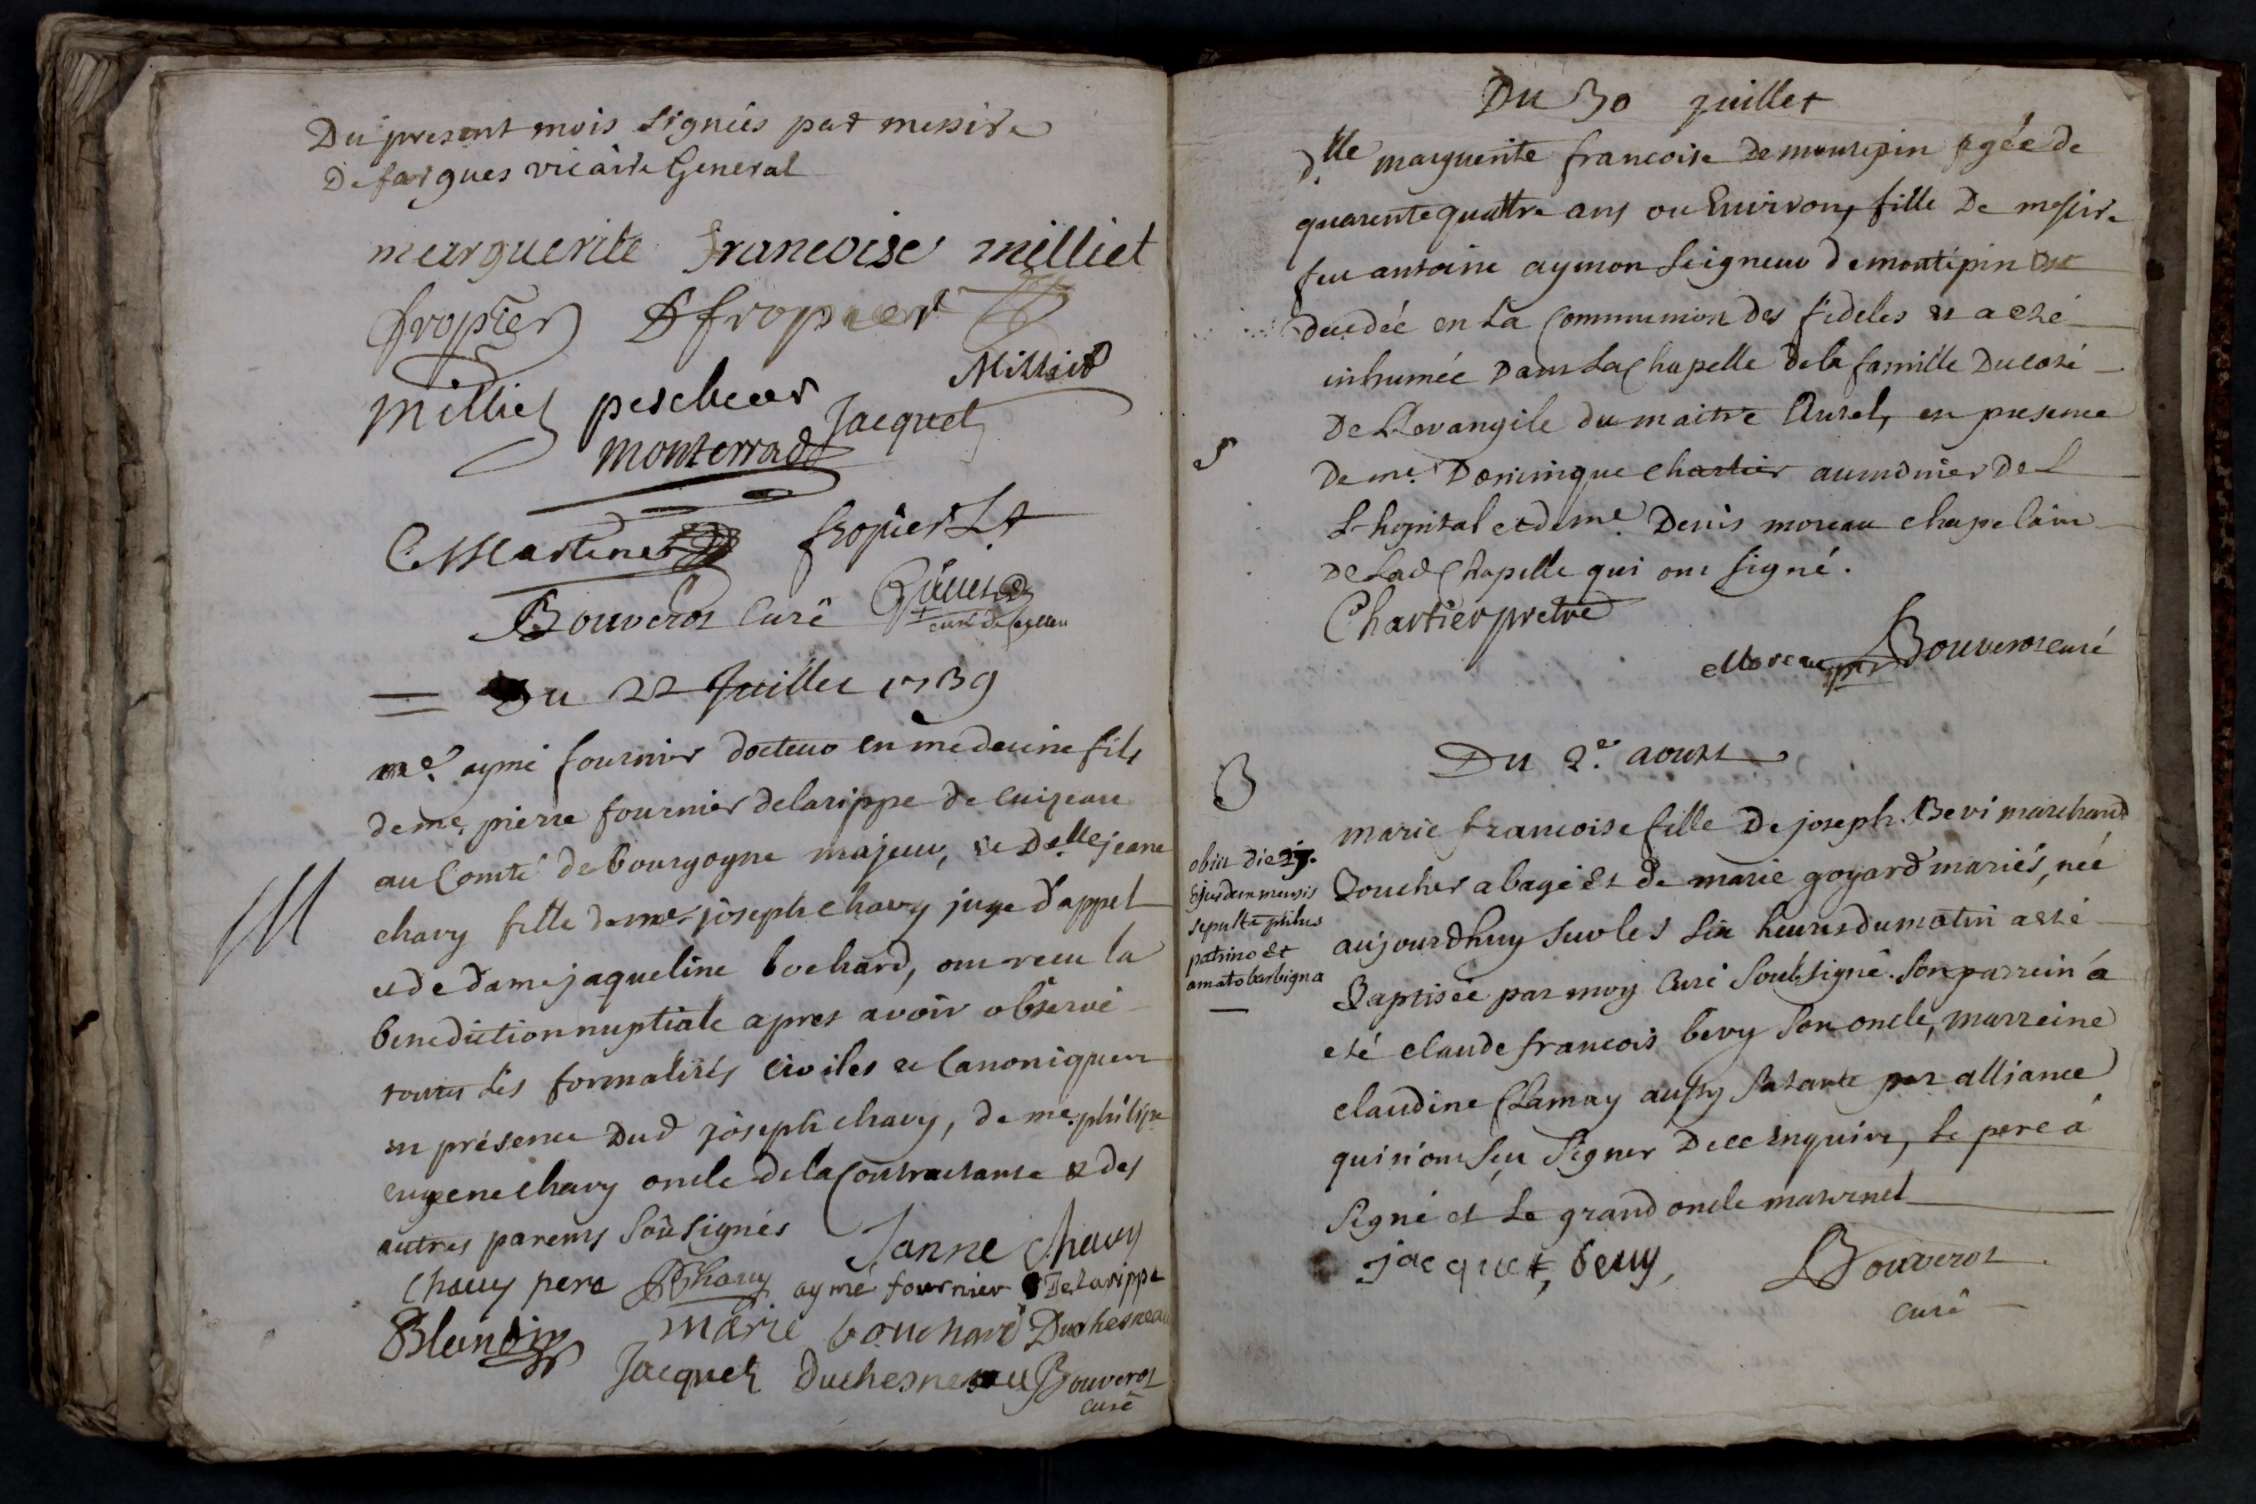 Du present mois signées par messire
Defargues vicaire General
marguerite francoise milliet
fropier fropier
Milliet
Milliet pescheur
Jacquet
monterrad
C Martinet fropier
Bouverot Curé
curé de
Du 22 Juillet 1739
me. aymé fournier docteur en medecine fils
de me. pierre fournier delarippe de cuizeau
au Comté de bourgogne majeur, et Delle jeane
chavy fille de me. joseph chavy juge d'appel
et de dame jaqueline bochard, ont receu la
benediction nuptiale apres avoir observé
toutes les formalités civiles et Canoniques
en présence Dud joseph chavy, de me. philipe
eugene chavy oncle de la Contractante et des
autres parents sousignés Janne chavy
Chavy pere Chavy aymé fournier Delarippe
Blondin marie bouchard Duchesneau
Jacquet Duchesneau Bouverot
curé
Du 30 juillet
dlle marguerite francoise de montepin agée de
quarente quattre ans ou Environ, fille De messire
feu antoine aymon seigneur de montepin est
decedée en la Communion des fideles et a esté
inhumée Dans la Chapelle de la famille Du costé
S
De L'evangile du maitre Autel, en presence
De me. Dominique chartier aumonier de L
L'hopital et de me. Denis moreau chapelain
De Lad Chapelle qui ont signé.
Chartier pretre
Moreau ptre Bouverot curé
Du 2e. aoust
B
marie francoise fille De joseph Bevi marchand
obiit die 27.
ejusdem mensis
sepulta ptibus
patrino et
amato barbigna
Boucher a bagé et de marie goyard mariés, née
aujourdhuy sur les six heures du matin a esté
Baptisée par moy Curé Soubsigné. Son parrein a
eté claude francois bevy son oncle, marreine
claudine Chamay aussy sa tante par alliance
qui n'ont sçu signer De ce enquis, le pere a
signé et le grand oncle maternel
jacquet, bevy, Bouverot
curé